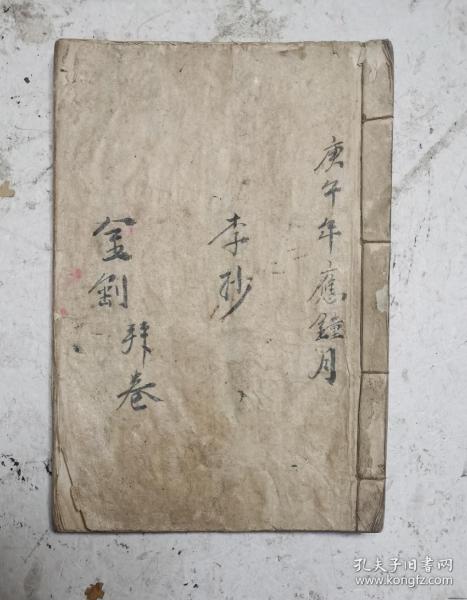 庚午年應鐘月
李抄
金剛拜卷
孔夫子旧书网
www.kongfz.com